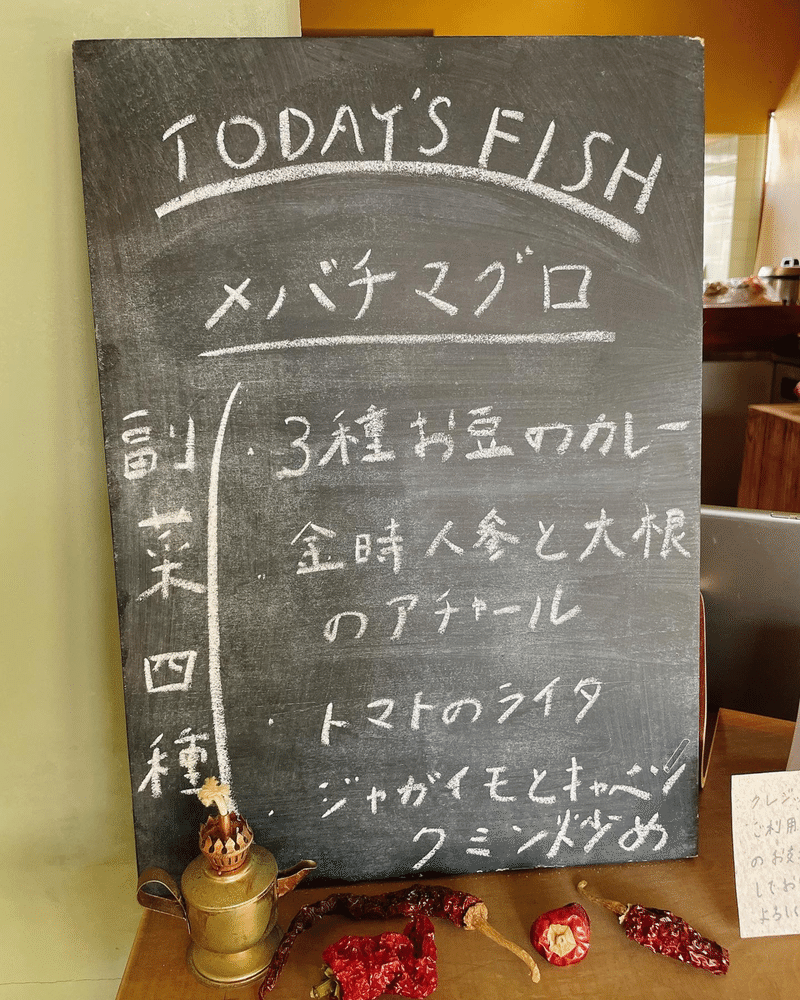 TODAY'S FISH
メバチマグロ
副菜四種
・3種お豆のカレー
・金時人参と大根
のアチャール
・トマトのライタ
・ジャガイモとキャベツ
クミン炒め
クレジッ
ご利用
のお支
してお
よろしく